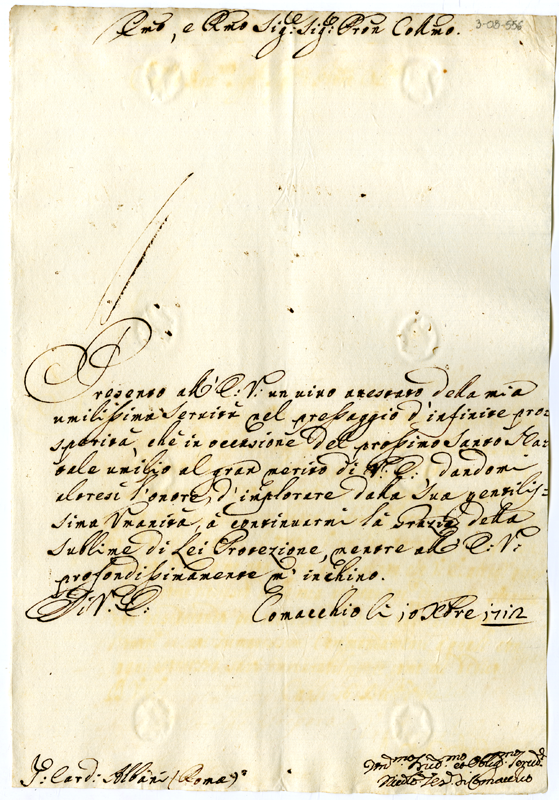 3-08-556
Emo, e Rmo Sig:r Sig:r Pron Collmo.
Presento all' E: V: un vivo attestato della mia
umilissima servitù nel pressaggio d'infinite pro=
sperità, che in occasione del prossimo Santo Na=
tale umilio al gran merito di V: E: dandomi
altresì l'onore, d'implorare dalla sua gentilis=
sima Umanità, à continuarmi la Grazia della
sublime di Lei Protezione, mentre all' E: V:
profondissimamente m'inchino.
Di V: E:
Comacchio li 10 Xbre 1712
Card: Albani (Roma)
di Comacchio